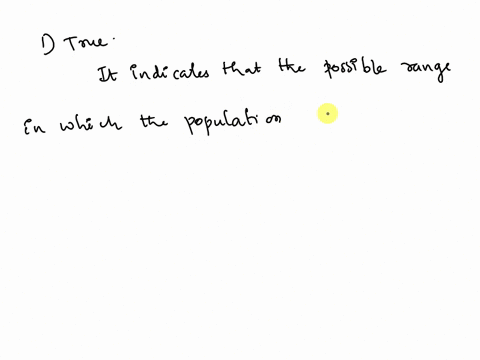 1) True.
It indicates that the possible range
in which the population